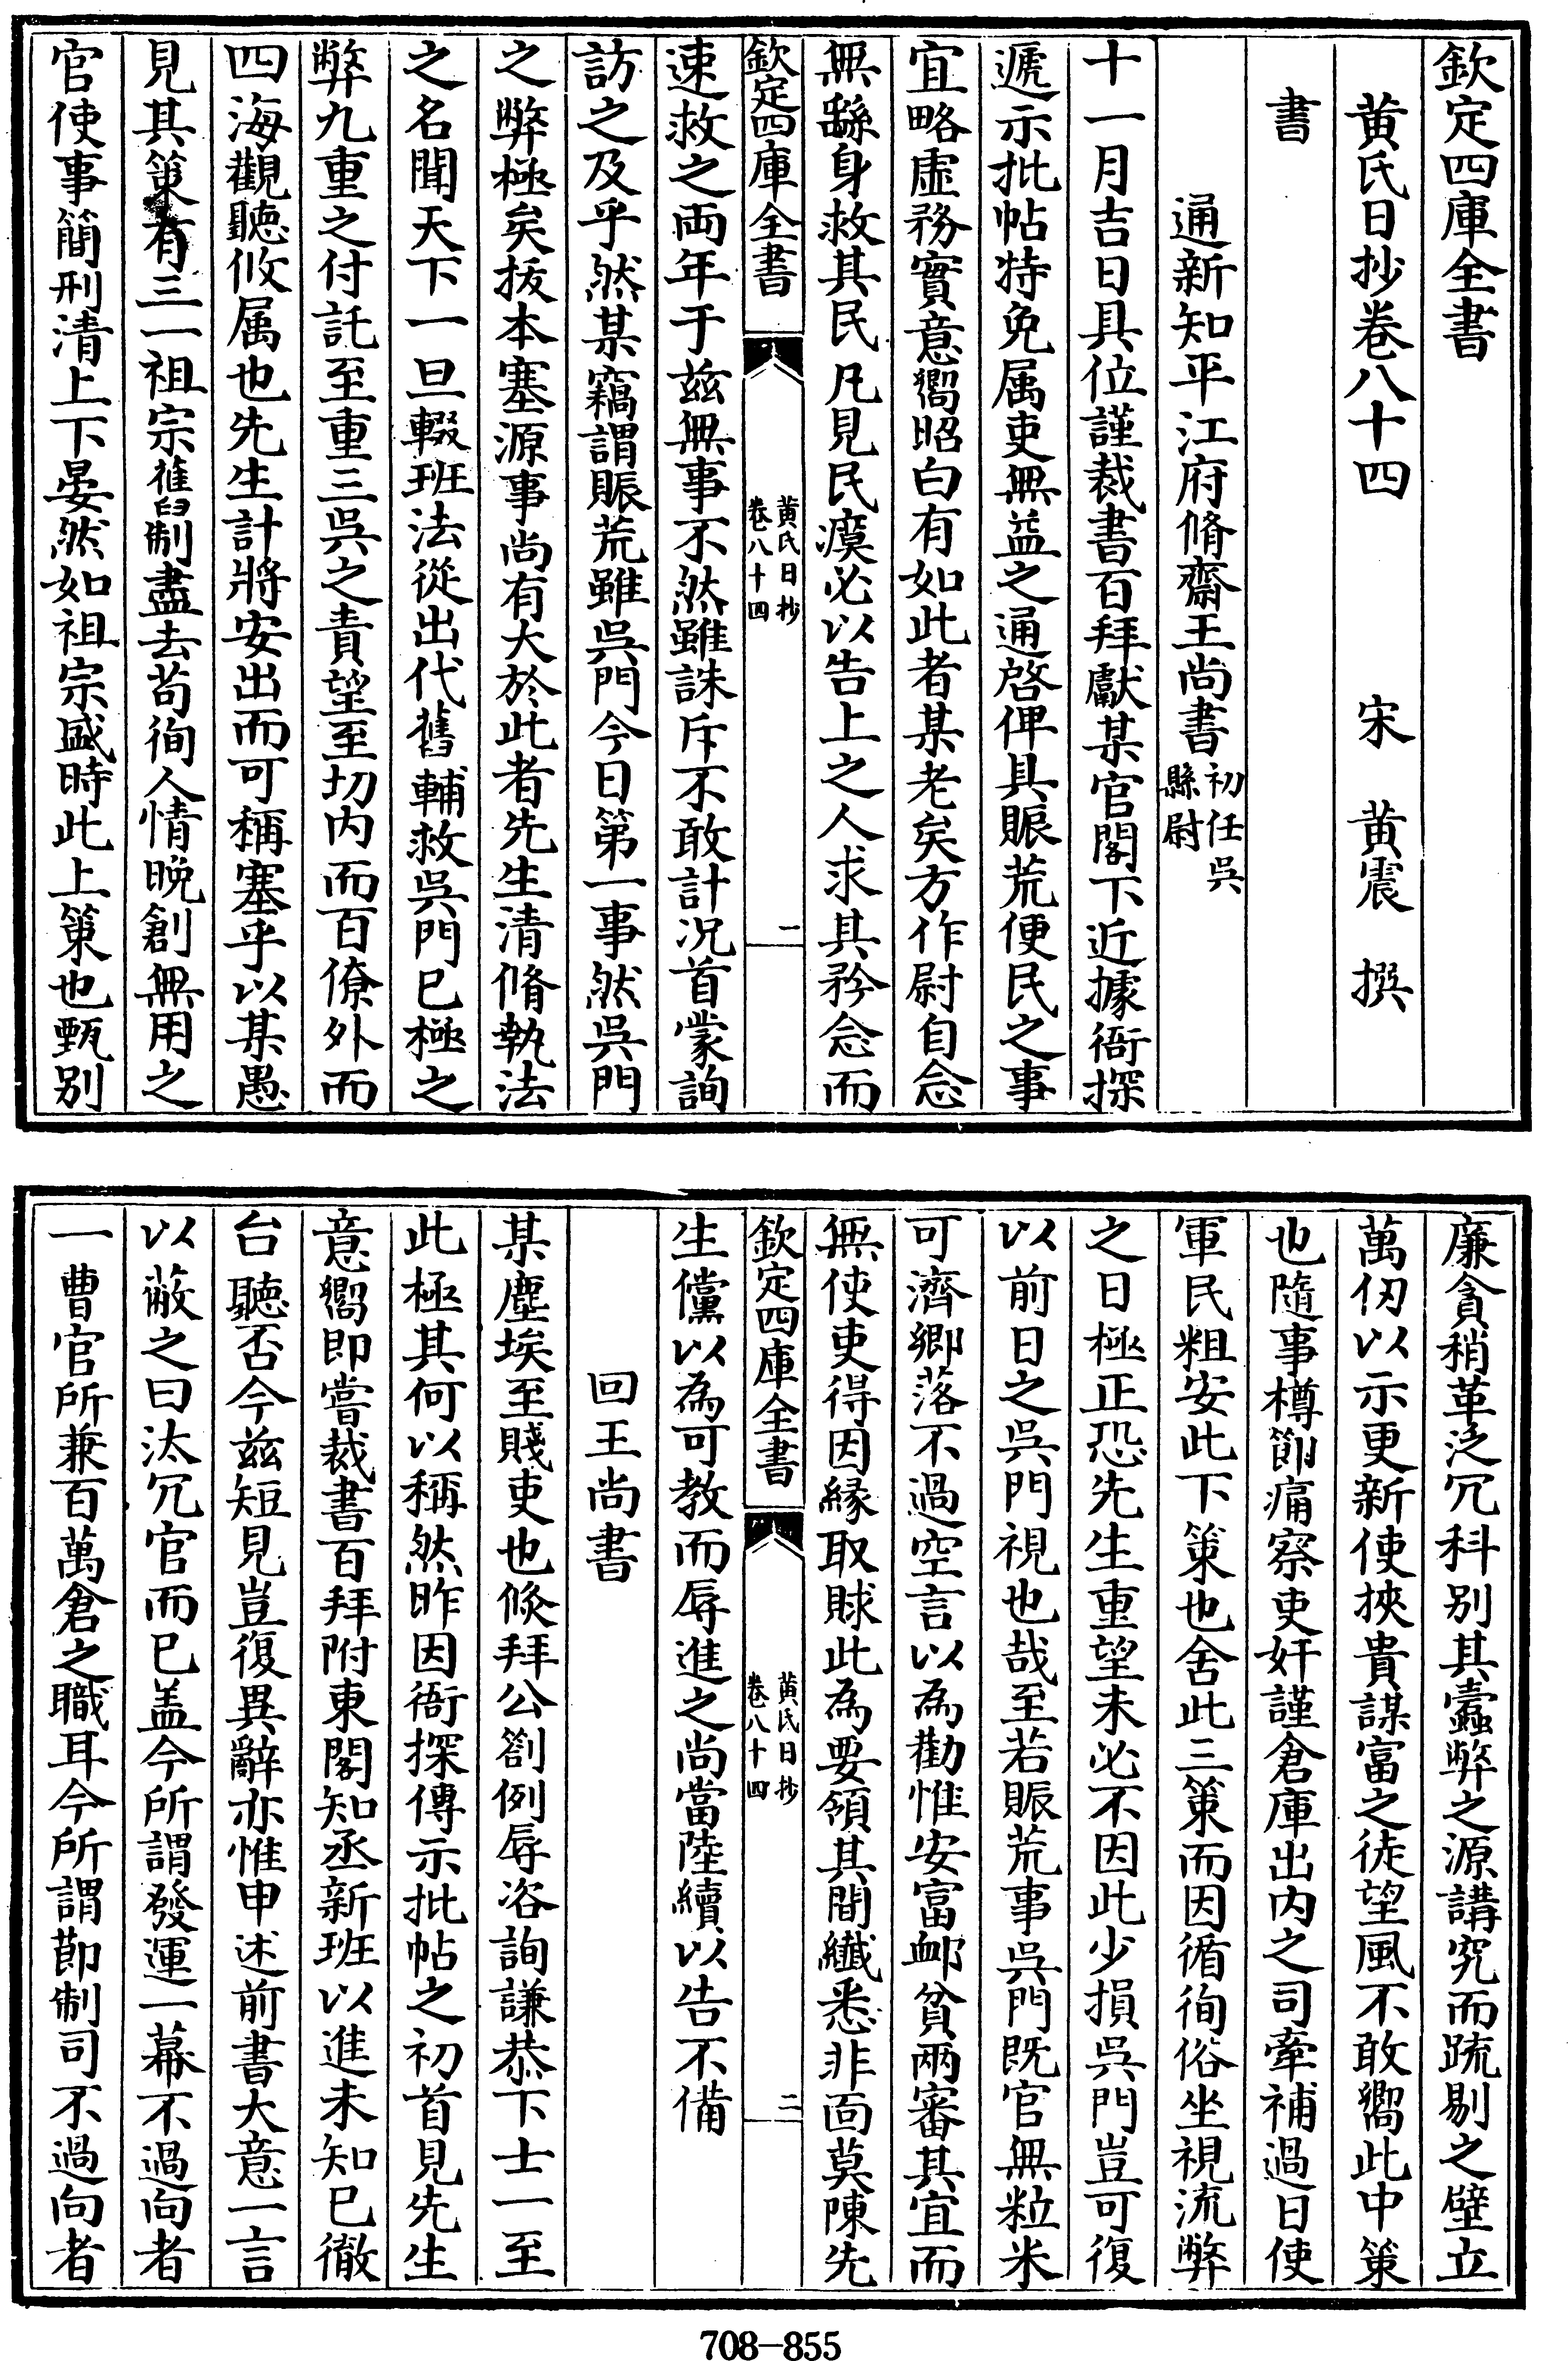 欽定四庫全書
黄氏日抄卷八十四 宋 黄震 撰
書
通新知平江府脩齋王尚書初任吳縣尉
十一月吉日具位謹裁書百拜獻某官閣下近據衙探
遞示批帖特免属吏無益之通啓俾具賑荒便民之事
宜略虚務實意嚮昭白有如此者某老矣方作尉自念
無繇身救其民凡見民瘼必以告上之人求其矜念而
欽定四庫全書 黄氏日抄卷八十四 一
速救之両年于兹無事不然雖誅斥不敢計况首蒙詢
訪之及乎然某竊謂賑荒雖吳門今日第一事然吳門
之弊極矣拔本塞源事尚有大於此者先生清脩執法
之名聞天下一旦輟班法從出代舊輔救吳門已極之
弊九重之付託至重三吳之責望至切内而百僚外而
四海觀聽攸属也先生計將安出而可稱塞乎以某愚
見其策有三一祖宗舊制盡去苟徇人情晩創無用之
官使事簡刑清上下晏然如祖宗盛時此上策也甄别
廉貪稍革泛冗科别其蠧弊之源講究而䟽剔之壁立
萬仭以示更新使挾貴謀富之徒望風不敢嚮此中策
也隨事樽節痛察吏奸謹倉庫出内之司牽補過日使
軍民粗安此下策也舍此三策而因循徇俗坐視流弊
之日極正恐先生重望未必不因此少損吳門豈可復
以前日之吳門視也哉至若賑荒事吳門既官無粒米
可濟鄉落不過空言以為勸惟安富䘏貧兩審其宜而
無使吏得因縁取賕此為要領其間纎悉非面莫陳先
欽定四庫全書 黄氏日抄卷八十四 二
生儻以為可教而辱進之尚當陸續以告不備
回王尚書
某塵埃至賤吏也倐拜公劄例辱咨詢謙恭下士一至
此極其何以稱然昨因衙探傳示批帖之初首見先生
意嚮即嘗裁書百拜附東閣知丞新班以進未知已徹
台聽否今兹短見豈復異辭亦惟申述前書大意一言
以蔽之曰汰冗官而已盖今所謂發運一幕不過向者
一曹官所兼百萬倉之職耳今所謂節制司不過向者
708-855